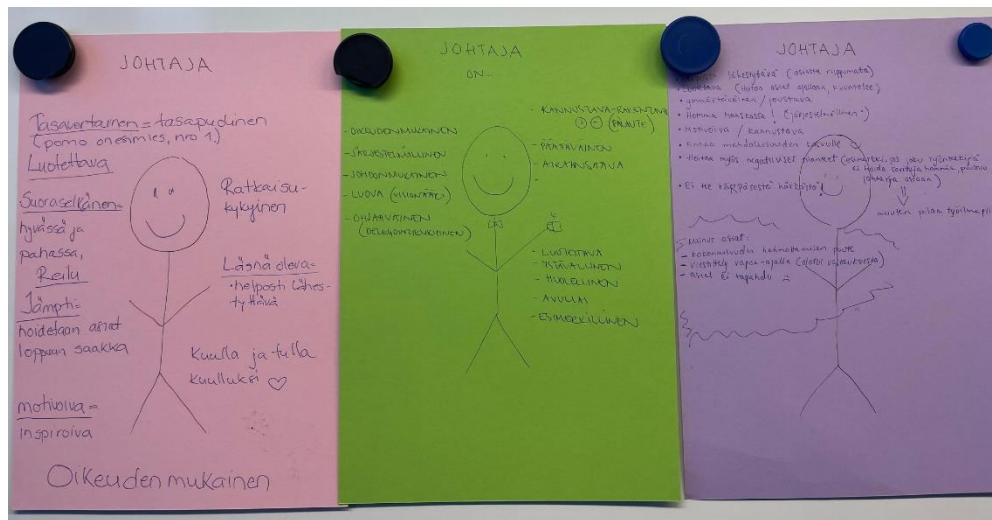 JOHTAJA
Tasavertainen = tasapuolinen
(pomo onesimies, nro 1.)
Luotettava
Suoraselkänen =
hyvässä ja
pahassa,
Reilu
Jämpti =
hoidetaan asiat
loppuun saakka
motivoiva =
inspiroiva
Ratkaisu-
kykyinen
Läsnä oleva =
• helposti lähes-
tyttävä
Kuulla ja tulla
kuulluksi ♡
Oikeudenmukainen
JOHTAJA
ON...
- OIKEUDENMUKAINEN
- JÄRJESTELMÄLLINEN
- JOHDONMUKAINEN
- LUOVA
- OHJAAVAINEN
- KANNUSTAVA-RAKENTAVA
+ - (PALAUTE)
- PÄÄTTÄVÄINEN
- AIKAANSAAVA
- LUOTETTAVA
- YSTÄVÄLLINEN
- HUOLELLINEN
- AVULIAS
- ESIMERKILLINEN
JOHTAJA
lähestyttävä (asiasta riippumatta)
(hoitaa asiat ajallaan, kuuntelee)
• ymmärtäväinen / joustava
• Homma hanskassa! (järjestelmällinen)
• Motivoiva / kannustava
• Antaa mahdollisuuden
• Hoitaa myös negatiiviset (esimerkiksi, jos joku työntekijä
ei hoida sovittuja hommia, puuttuu
asiaan)
• Ei tee kärpäsestä härkästä!
muuten pilaa työilmapiiri
Muut asiat:
- kokonaisuuden hahmottamisen puute
- viestittely vapaa-ajalla
- asiat ei tapahdu